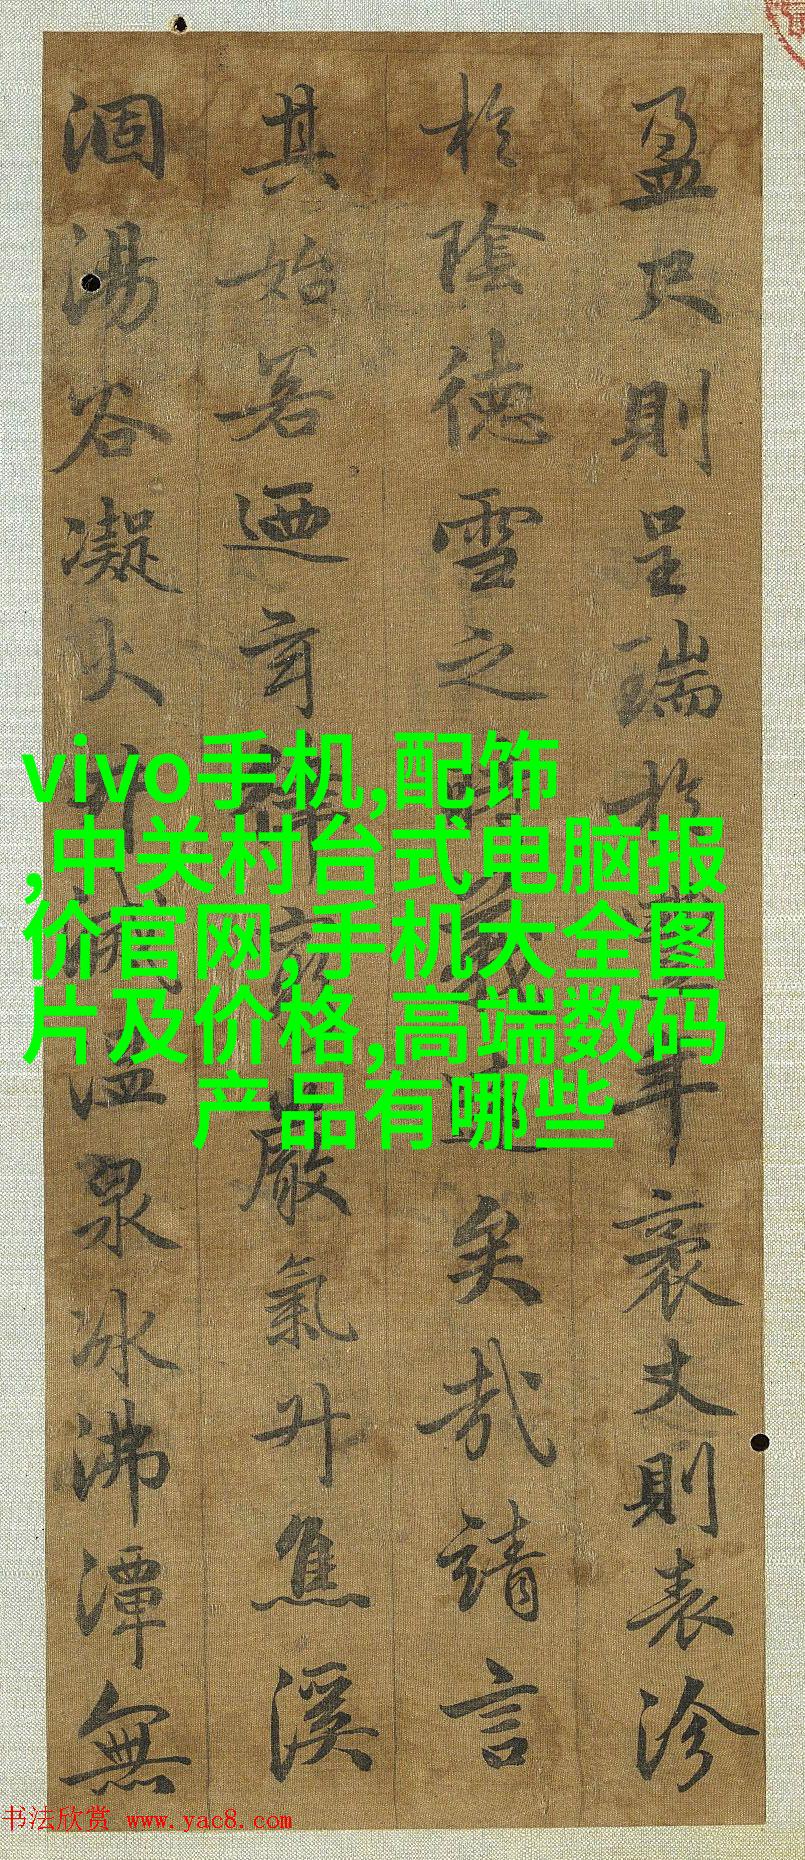 盈尺則呈瑞於豐年袤丈則表沴
於陰德雪之時義遠矣哉請言
其始若迺玄律窮嚴氣升焦溪
涸湯谷凝火井滅溫泉冰沸潭無
vivo手机,配饰
,中关村台式电脑报
价官网,手机大全图
片及价格,高端数码
产品有哪些
书法欣赏 www.yac8.com